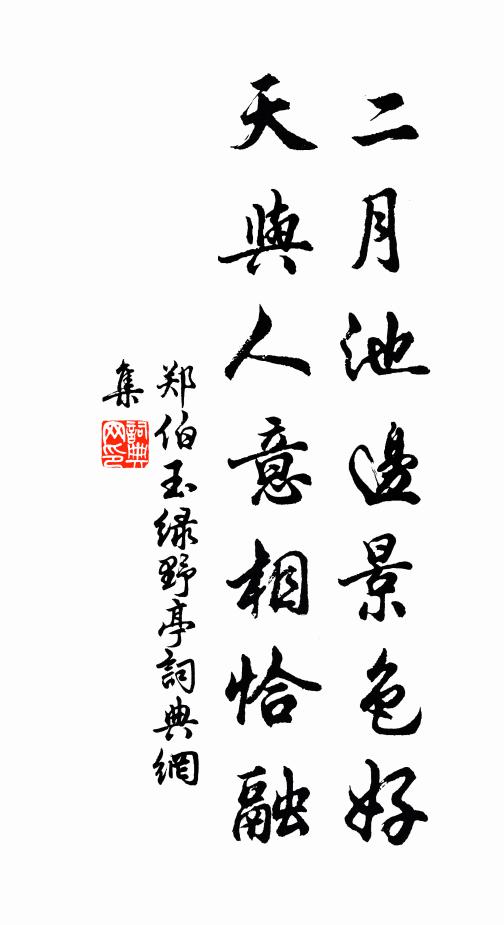 二月池邊景色好
天與人意相恰融
郑伯玉绿野亭詞典網
集
詞典
网印